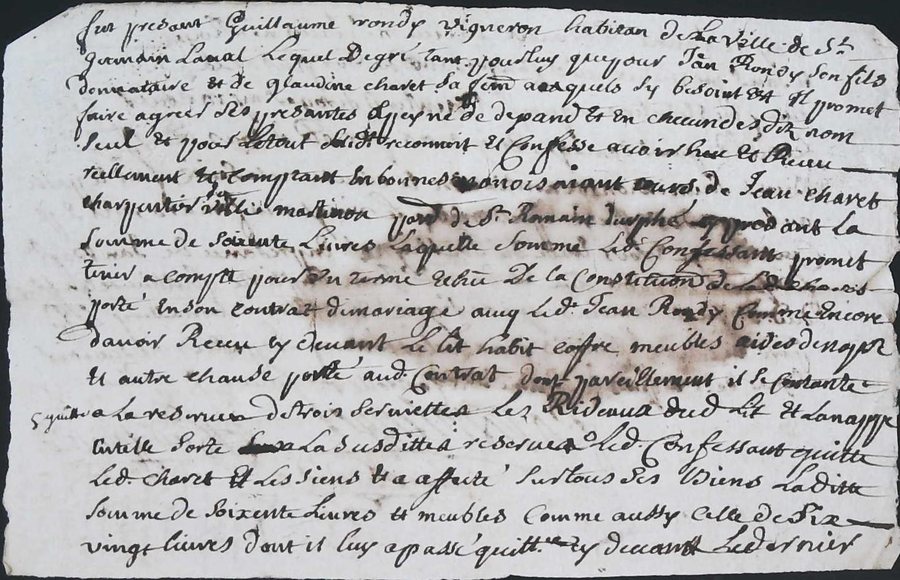 fut presant Guillaume rondy vigneron habitan de La ville de St
Germain Laual Lequel Degré tant pour luy que pour Jan Rondy son fils
donnataire et de glaudine charet sa fem auxquels sy besoint est Il promet
faire agreer Ses presantes apeyne de depand Et En checun desdiz nom
seul et pour Letout solidt reconnoit Et Confesse auoir heu Et Receu
reellement Et Comptant En bonnes monois aiant cours de Jean charet
charpentier par de St Romain durphé appredant La
somme de soixente Liures Laquelle Somme Led. Confessant promet
tenir a compte pour un terme echeu De la Constitution de Lad charet
porté En son contrat demariage aueq Led. Jean Rondy Comme Encore
dauoir Receu cy deuant Le lit habit coffre meubles aides denoppe
Et autre chause porté aud. Contrat dont pareillement il Se Contante
quitte a La reserue de trois seruiettes Les Rideaux dud Lit Et La nappe
sorte La susditte reserue Led. Confessant quitte
Led. charet Et Les siens Et a affecté Sur tous Ses Biens Laditte
somme de Soixente Liures et meubles Comme aussy Celle de Six
vingt liures dont il luy a passé quitt.ce cy deuant Le dernier